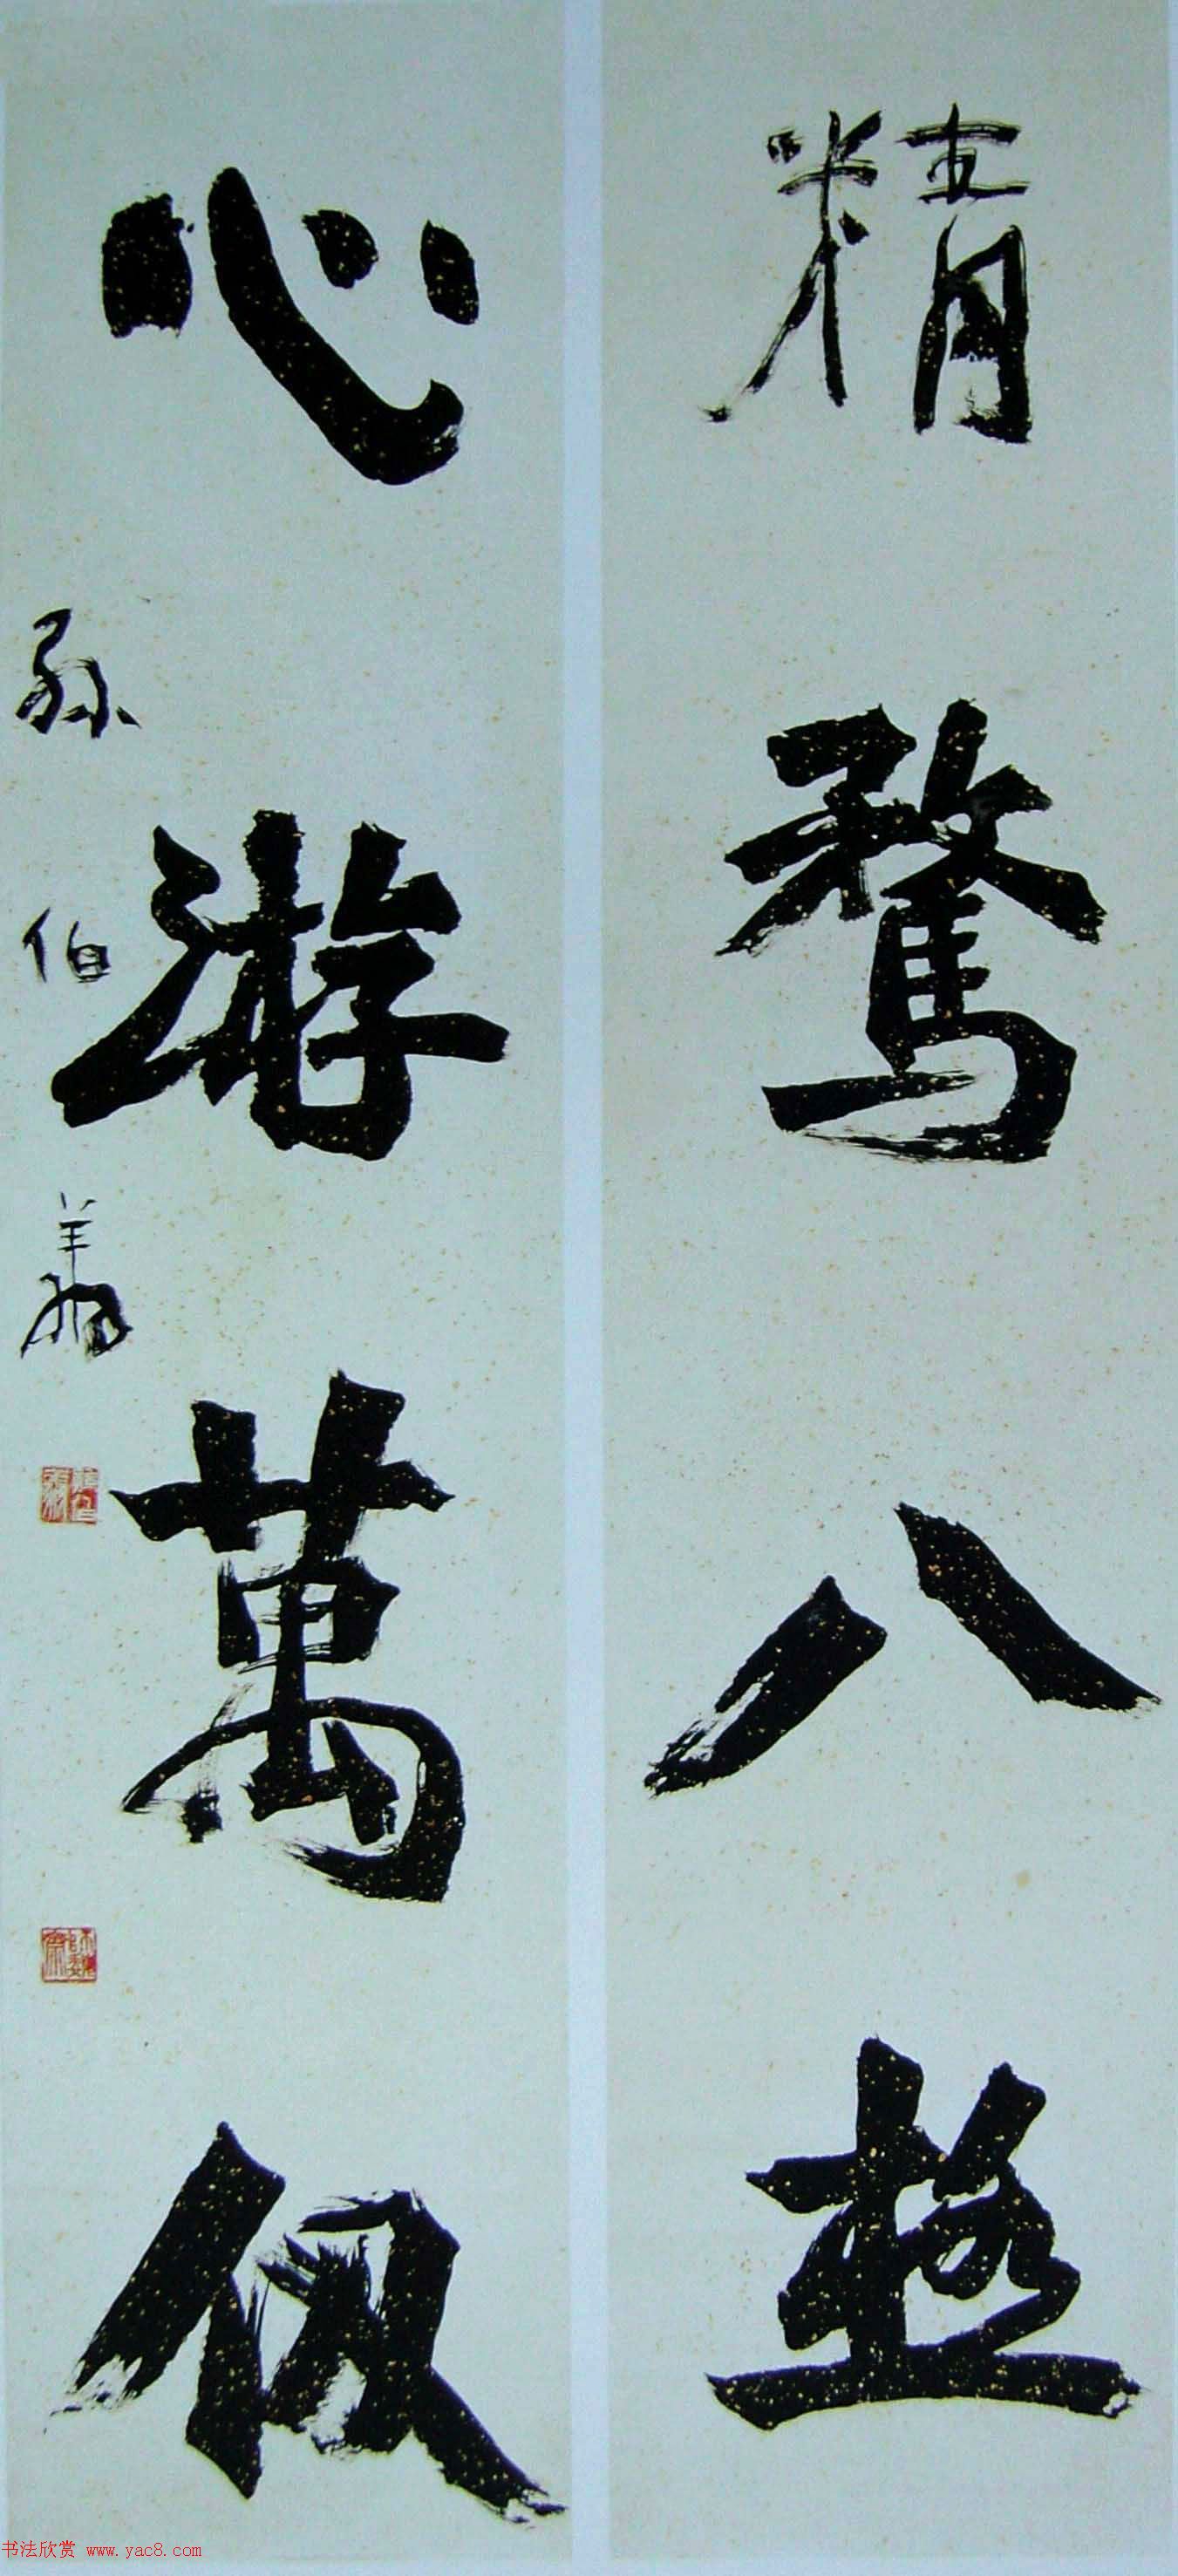 精骛八極
心游萬仞
孫伯翔
书法欣赏 www.yac8.com